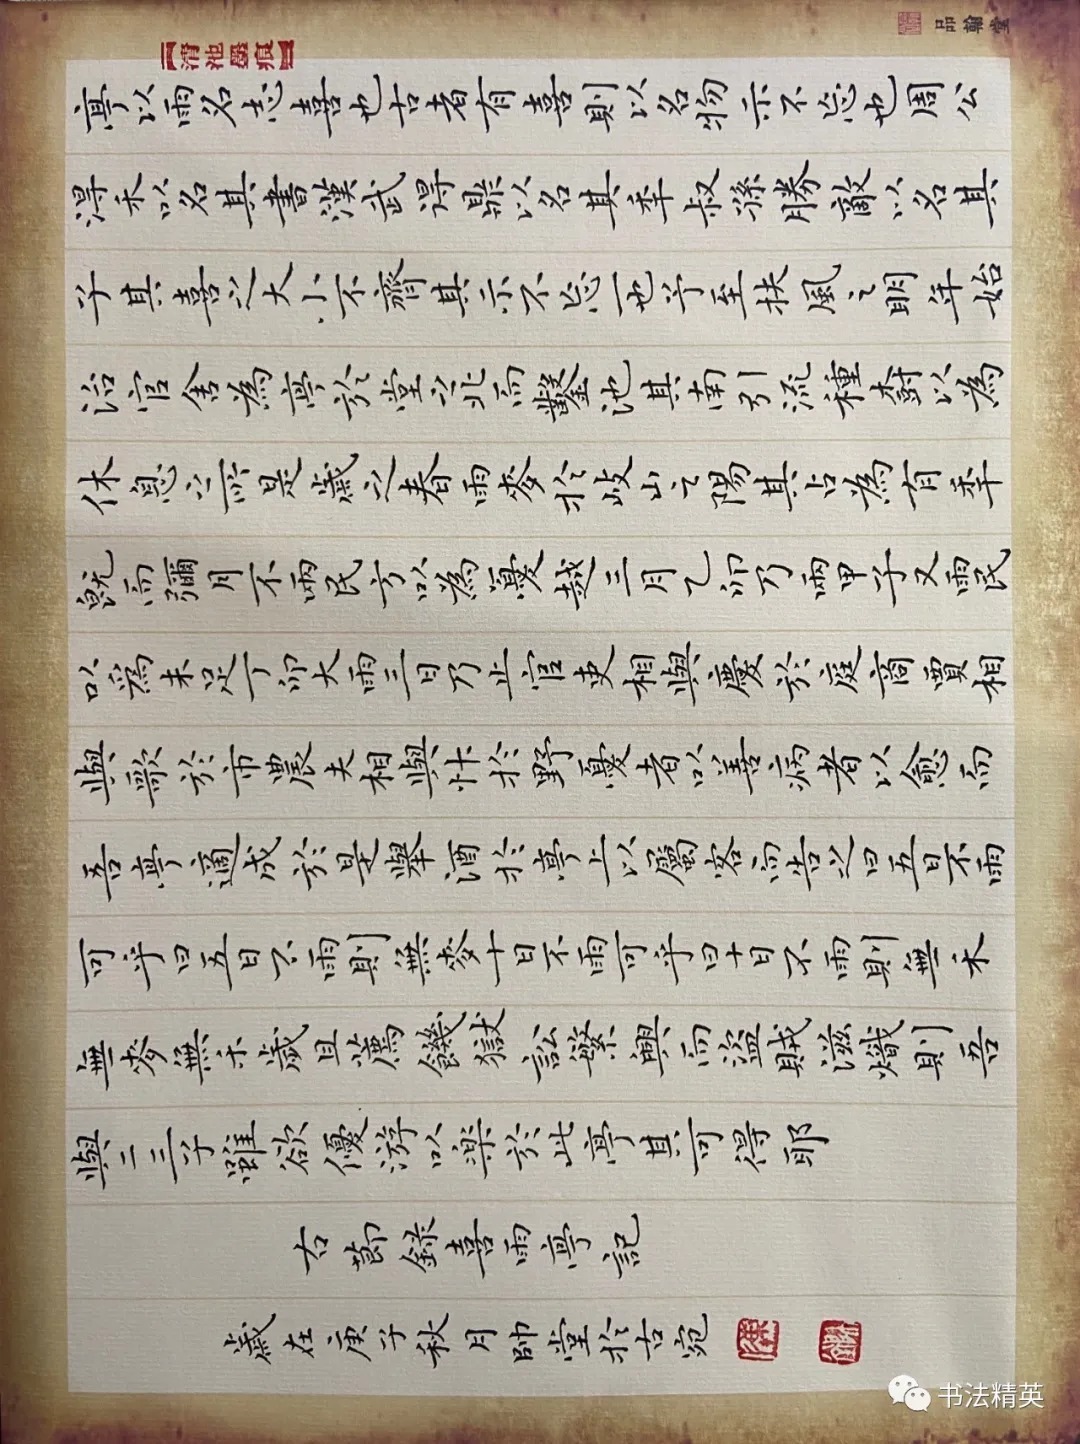 品翰堂
【清池墨痕】
亭以雨名志喜也古者有喜則以名物示不忘也周公
得禾以名其書漢武得鼎以名其年叔孫勝敵以名其
子其喜之大小不齊其示不忘一也予至扶風之明年始
治官舍為亭於堂之北而鑿池其南引流種樹以為
休息之所是歲之春雨麥於岐山之陽其占為有年
既而彌月不雨民方以為憂越三月乙卯乃雨甲子又雨民
以爲未足丁卯大雨三日乃止官吏相與慶於庭商賈相
與歌於市農夫相與忭於野憂者以喜病者以愈而
吾亭適成於是舉酒於亭上以屬客而告之曰五日不雨
可乎曰五日不雨則無麥十日不雨可乎曰十日不雨則無禾
無麥無禾歲且薦饑獄訟繁興而盜賊滋熾則吾
與二三子雖欲優游以樂於此亭其可得耶
右節錄喜雨亭記
歲在庚子秋月帥堂於古宛
书法精英